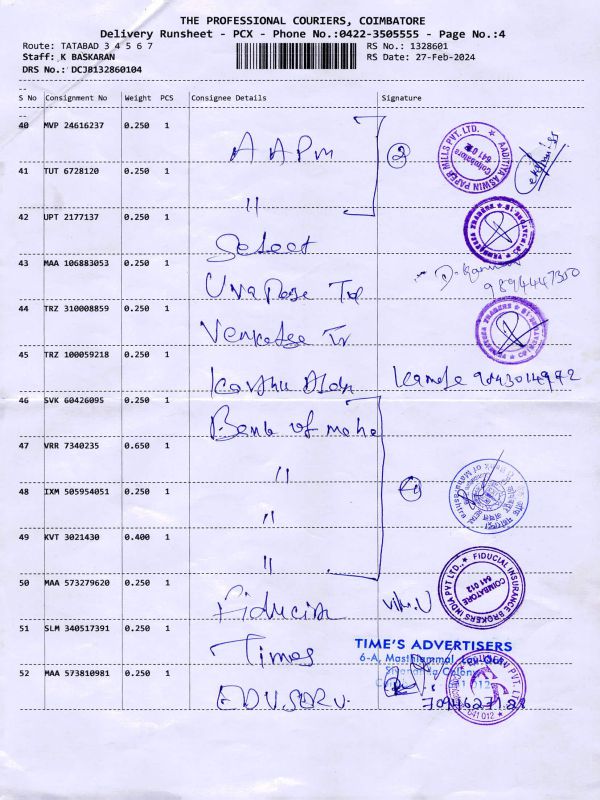 THE PROFESSIONAL COURIERS, COIMBATORE
Delivery Runsheet - PCX - Phone No.:0422-3505555 - Page No.:4
Route: TATABAD 3 4 5 6 7 RS No.: 1328601
Staff: K BASKARAN RS Date: 27-Feb-2024
DRS No.: DCJB132860104
S No Consignment No Weight PCS Consignee Details Signature
40 MVP 24616237 0.250 1 AAPM 2
AADITYA ASWIN PAPER MILLS PVT. LTD. Coimbatore 641 012
41 TUT 6728120 0.250 1 "
42 UPT 2177137 0.250 1 Select
43 MAA 106883053 0.250 1
9894447350
44 TRZ 310008859 0.250 1 Venkatesa Tr
45 TRZ 100059218 0.250 1
46 SVK 60426095 0.250 1 Bank of maha
47 VRR 7340235 0.650 1 "
48 IXM 505954051 0.250 1 " 4
49 KVT 3021430 0.400 1 "
50 MAA 573279620 0.250 1 Fiducia
FIDUCIAL INSURANCE BROKERS INDIA PVT LTD. COIMBATORE 641 012
51 SLM 340517391 0.250 1 Times
TIME'S ADVERTISERS
52 MAA 573810981 0.250 1 EDUSERV